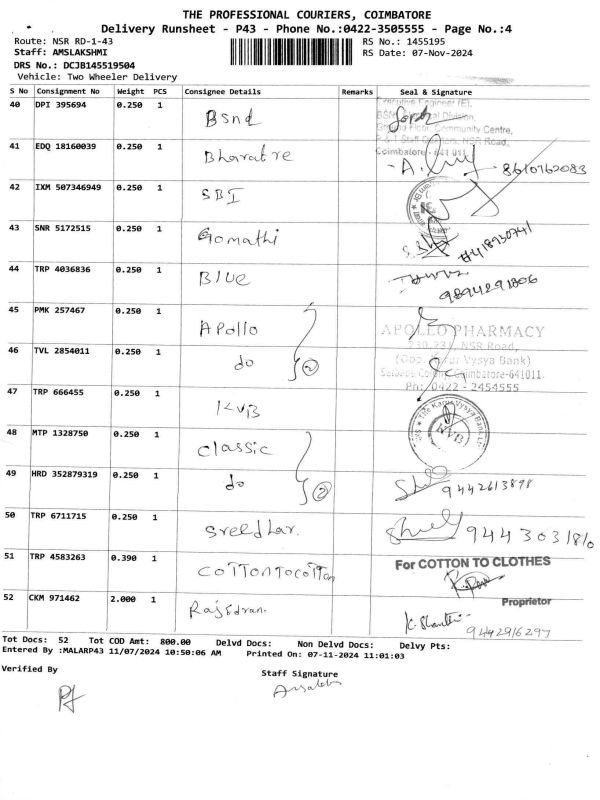 THE PROFESSIONAL COURIERS, COIMBATORE
Delivery Runsheet - P43 - Phone No.:0422-3505555 - Page No.:4
Route: NSR RD-1-43 RS No.: 1455195
Staff: AMSLAKSHMI RS Date: 07-Nov-2024
DRS No.: DCJB145519504
Vehicle: Two Wheeler Delivery
S No Consignment No Weight PCS Consignee Details Remarks Seal & Signature
40 DPI 395694 0.250 1 Bsnl
Executive Engineer (E),
Community Centre,
NSR Road,
Coimbatore - 641 011
41 EDQ 18160039 0.250 1 Bharatre 8610762083
42 IXM 507346949 0.250 1 SBI
43 SNR 5172515 0.250 1 Gomathi
44 TRP 4036836 0.250 1 Blue 9894291806
45 PMK 257467 0.250 1 Apollo
APOLLO PHARMACY
NSR Road,
46 TVL 2854011 0.250 1 do 2
Vysya Bank)
Coimbatore-641011.
Ph: 0422 - 2454555
47 TRP 666455 0.250 1 KVB
The Karur Vysya Bank Ltd
KVB
48 MTP 1328750 0.250 1 classic
49 HRD 352879319 0.250 1 do 2 9442613898
50 TRP 6711715 0.250 1 Sreedhar. 9443031810
51 TRP 4583263 0.390 1 COTTONTOCOTTON
For COTTON TO CLOTHES
Proprietor
52 CKM 971462 2.000 1 K. Shanthi 9442916297
Tot Docs: 52 Tot COD Amt: 800.00 Delvd Docs: Non Delvd Docs: Delvy Pts:
Entered By :MALARP43 11/07/2024 10:50:06 AM Printed On: 07-11-2024 11:01:03
Verified By Staff Signature